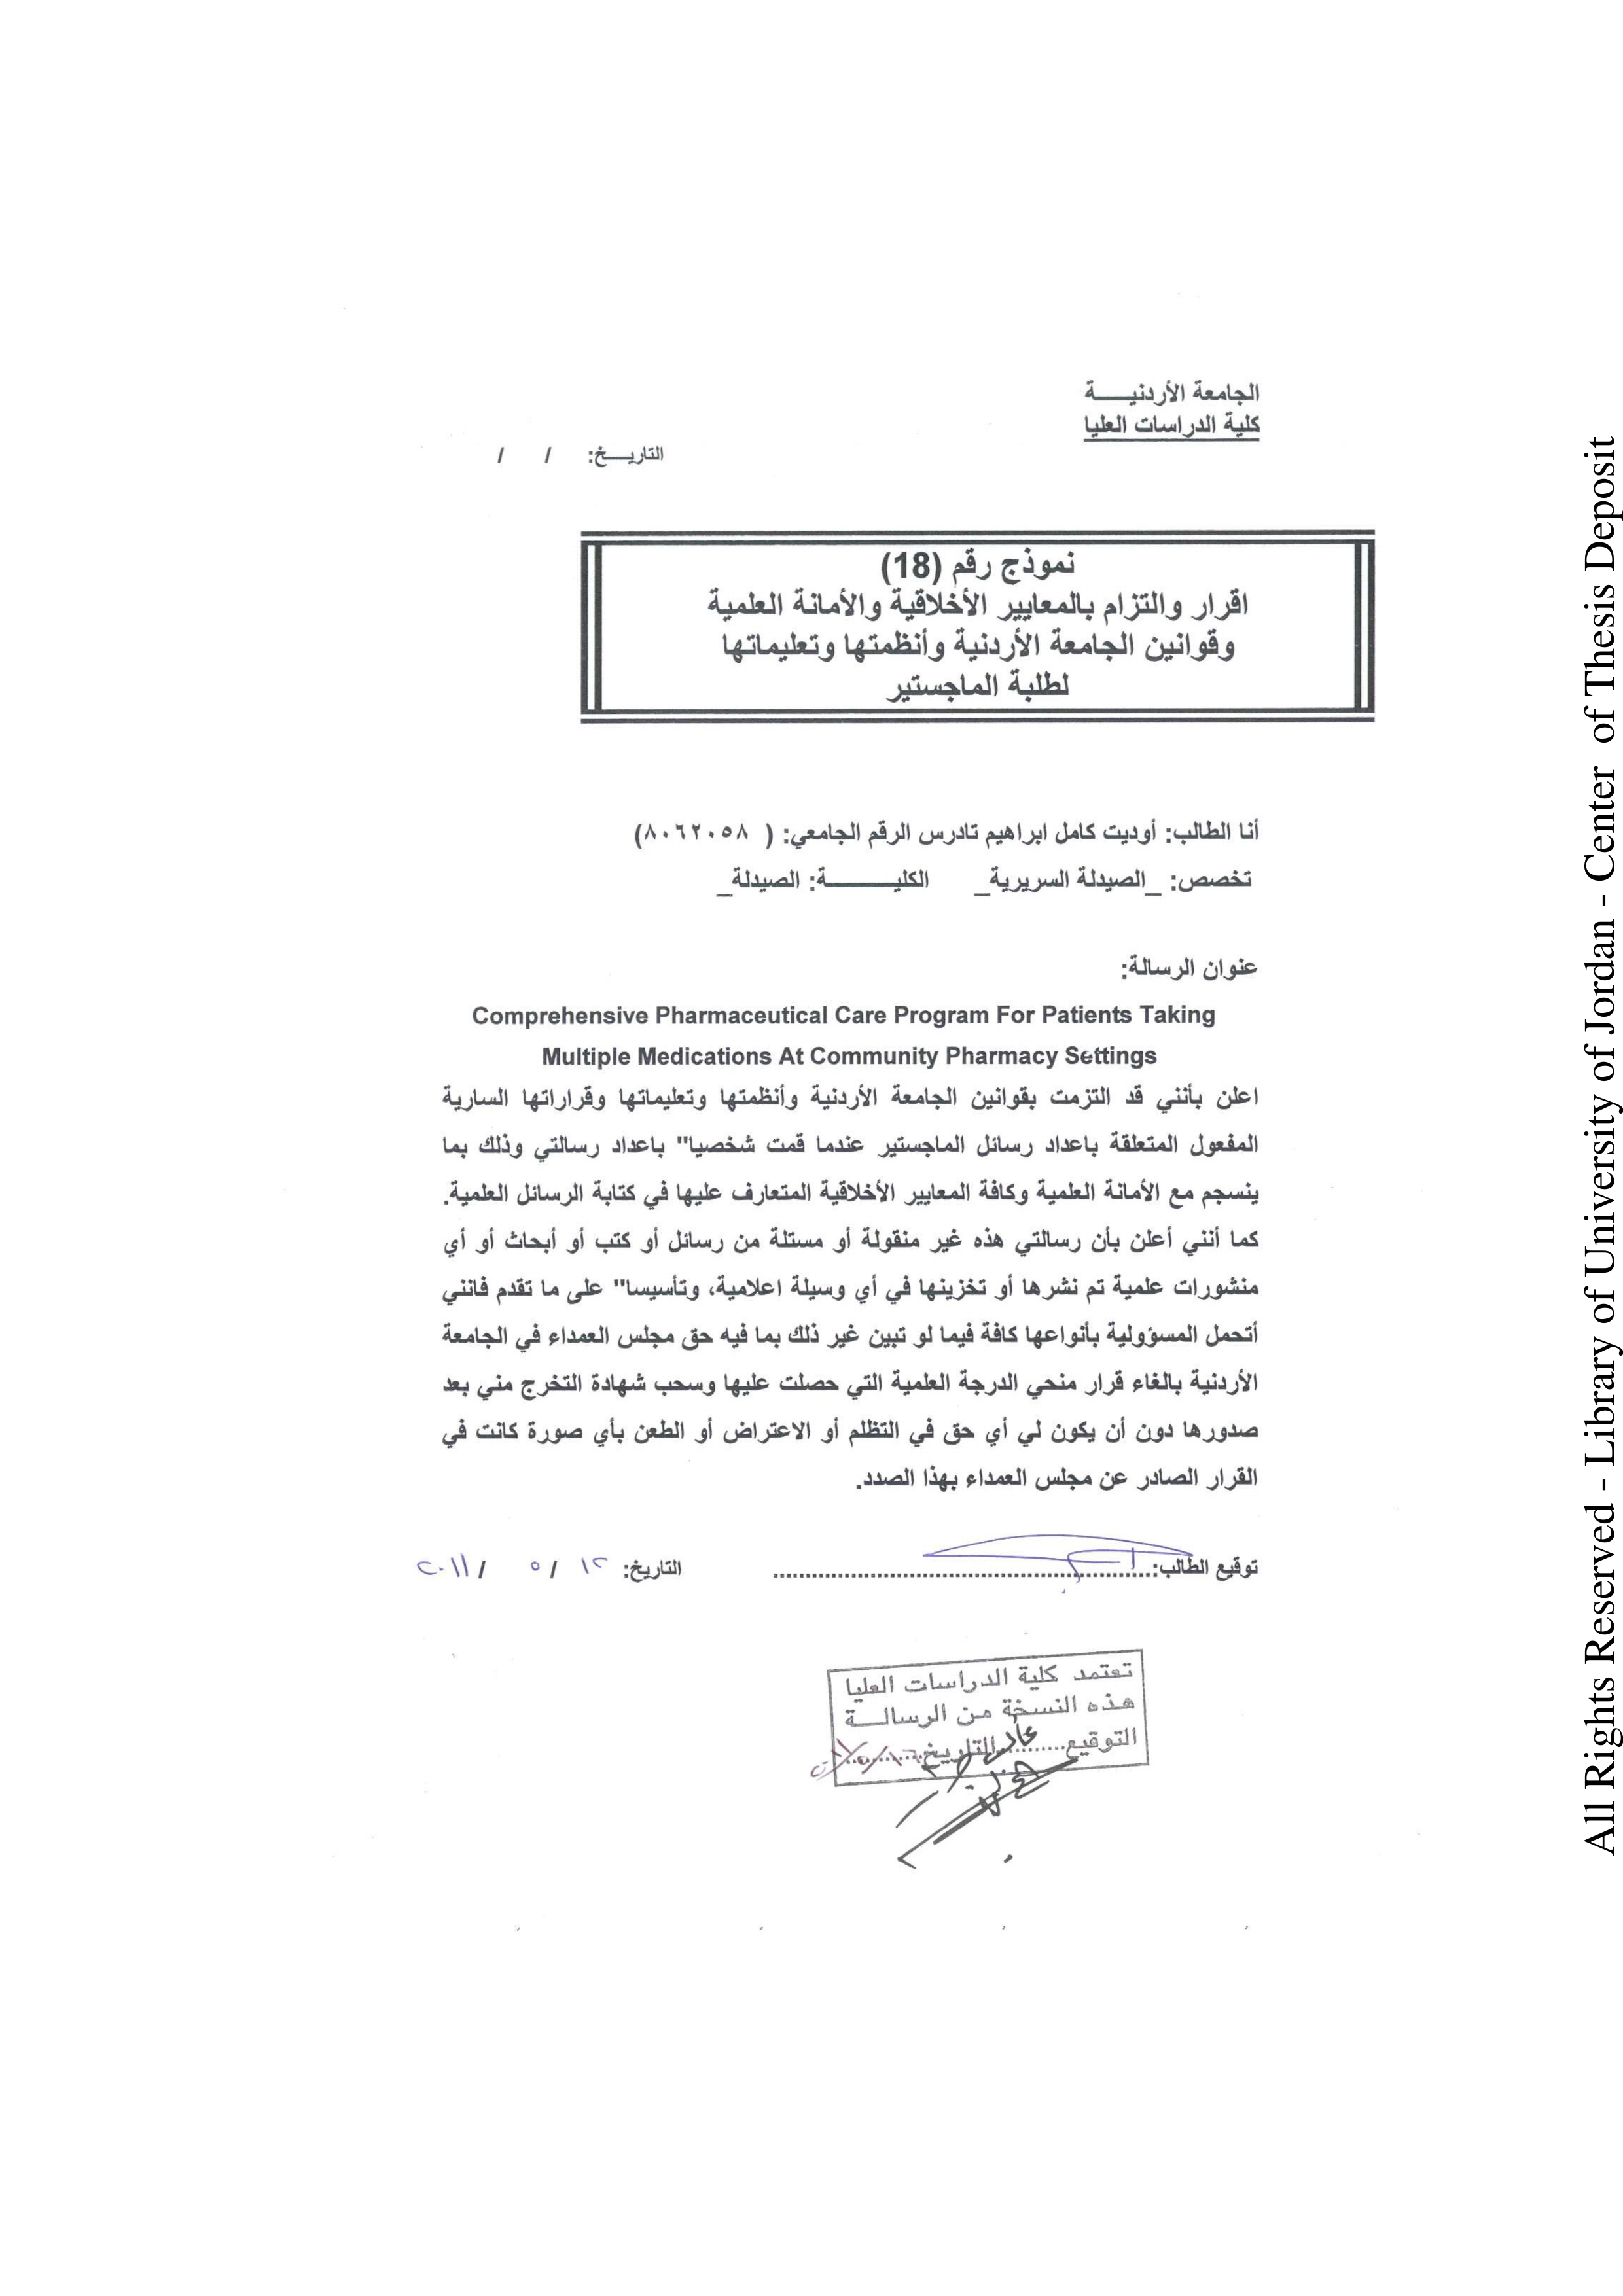 الجامعة الأردنيـــــة
كلية الدراسات العليا
التاريـــخ: / /
نموذج رقم (18)
اقرار والتزام بالمعايير الأخلاقية والأمانة العلمية
وقوانين الجامعة الأردنية وأنظمتها وتعليماتها
لطلبة الماجستير
أنا الطالب: أوديت كامل ابراهيم تادرس الرقم الجامعي: ( ٨٠٦٢٠٥٨)
تخصص: _الصيدلة السريرية_ الكليـــــــــة: الصيدلة_
عنوان الرسالة:
Comprehensive Pharmaceutical Care Program For Patients Taking
Multiple Medications At Community Pharmacy Settings
اعلن بأنني قد التزمت بقوانين الجامعة الأردنية وأنظمتها وتعليماتها وقراراتها السارية
المفعول المتعلقة باعداد رسائل الماجستير عندما قمت شخصيا" باعداد رسالتي وذلك بما
ينسجم مع الأمانة العلمية وكافة المعايير الأخلاقية المتعارف عليها في كتابة الرسائل العلمية.
كما أنني أعلن بأن رسالتي هذه غير منقولة أو مستلة من رسائل أو كتب أو أبحاث أو أي
منشورات علمية تم نشرها أو تخزينها في أي وسيلة اعلامية، وتأسيسا" على ما تقدم فانني
أتحمل المسؤولية بأنواعها كافة فيما لو تبين غير ذلك بما فيه حق مجلس العمداء في الجامعة
الأردنية بالغاء قرار منحي الدرجة العلمية التي حصلت عليها وسحب شهادة التخرج مني بعد
صدورها دون أن يكون لي أي حق في التظلم أو الاعتراض أو الطعن بأي صورة كانت في
القرار الصادر عن مجلس العمداء بهذا الصدد.
توقيع الطالب:........................................................... التاريخ: ١٢ / ٥ / ٢٠١١
تعتمد كلية الدراسات العليا
هذه النسخة من الرسالـــة
التوقيع...........التاريخ..........
All Rights Reserved - Library of University of Jordan - Center of Thesis Deposit